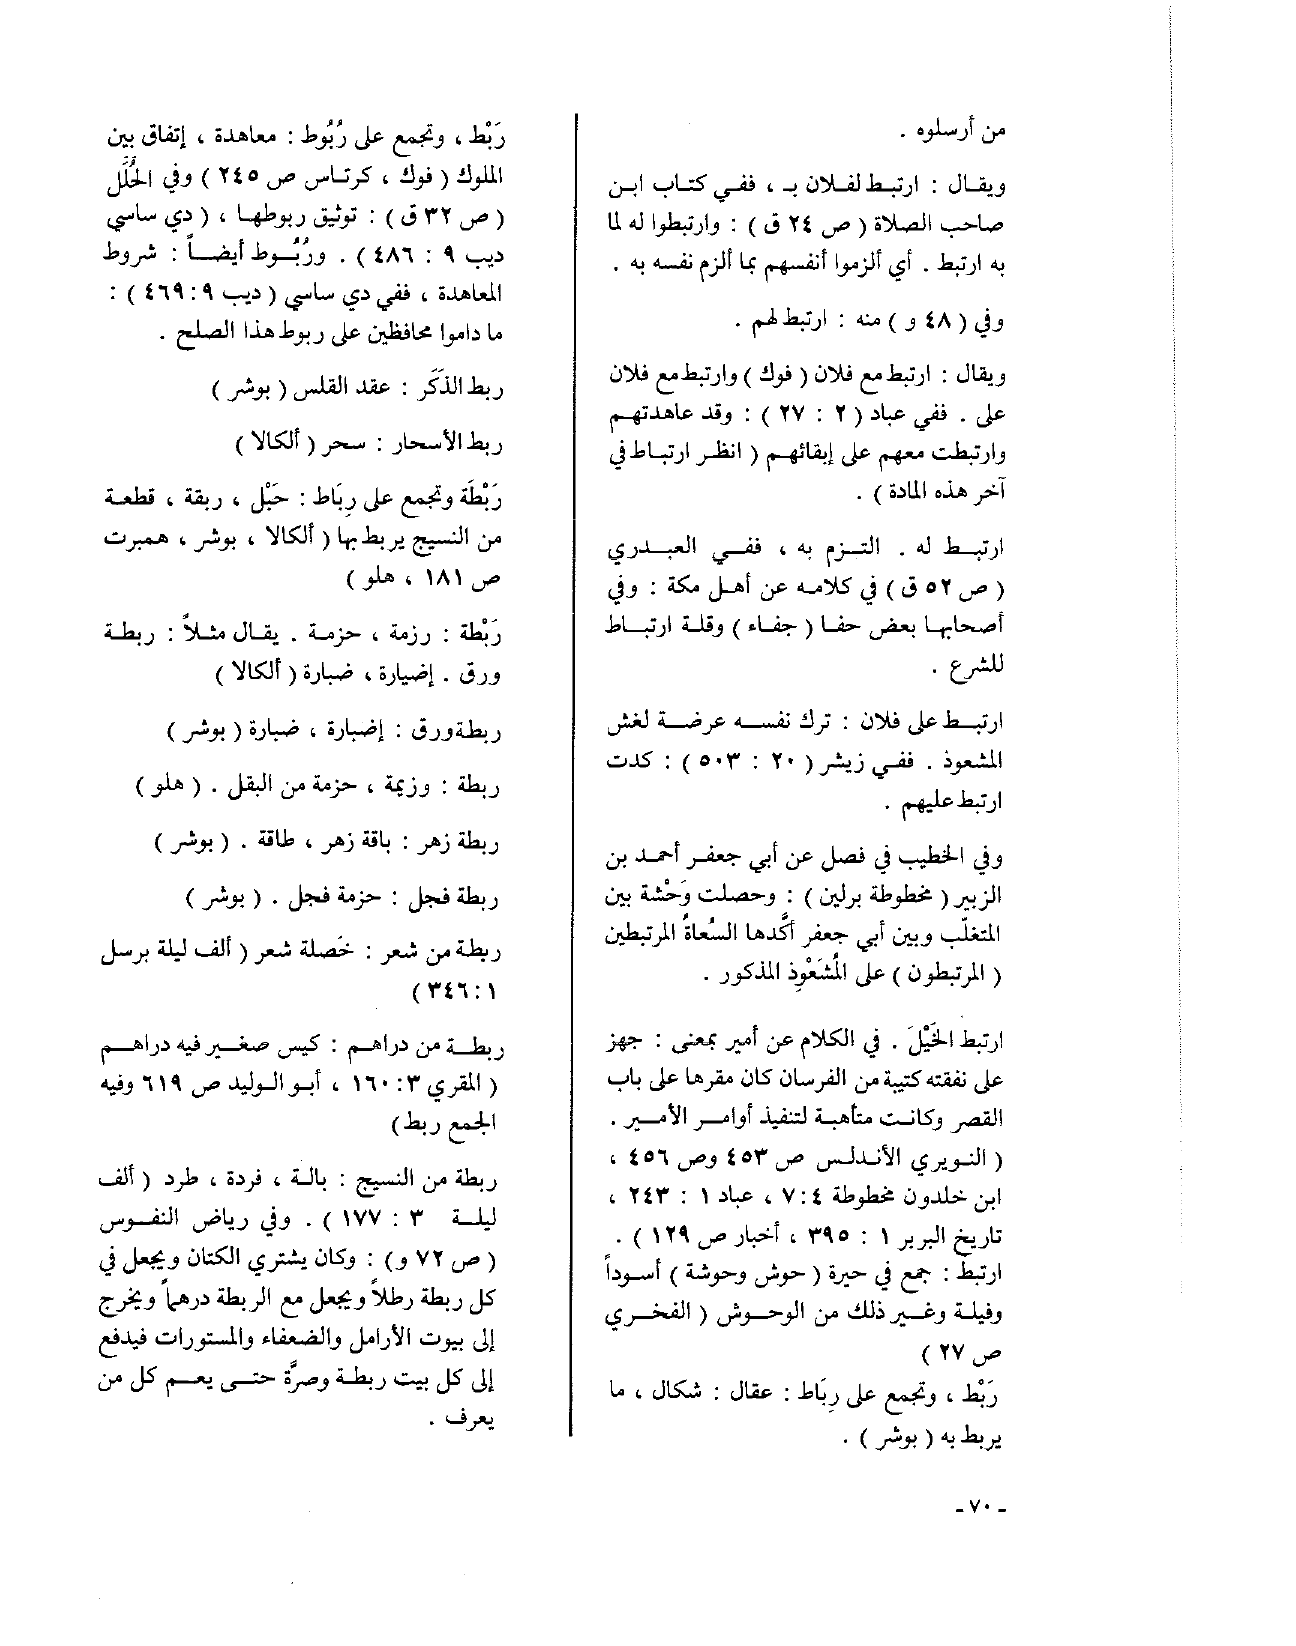 من أرسلوه .
ويقال : ارتبط لفلان بـ ، ففي كتاب ابن
صاحب الصلاة ( ص ٢٤ ق ) : وارتبطوا له لما
به ارتبط . أي ألزموا أنفسهم بما ألزم نفسه به .
وفي ( ٤٨ و ) منه : ارتبط لهم .
ويقال : ارتبط مع فلان ( فوك ) وارتبط مع فلان
على . ففي عباد ( ٢ : ٢٧ ) : وقد عاهدتهم
وارتبطت معهم على إبقائهم ( انظر ارتباط في
آخر هذه المادة ) .
ارتبط له . التزم به ، ففي العبدري
( ص ٥٢ ق ) في كلامه عن أهل مكة : وفي
أصحابها بعض حفا ( جفاء ) وقلة ارتباط
للشرع .
ارتبط على فلان : ترك نفسه عرضة لغش
المشعوذ . ففي زيشر ( ٢٠ : ٥٠٣ ) : كدت
ارتبط عليهم .
وفي الخطيب في فصل عن أبي جعفر أحمد بن
الزبير ( مخطوطة برلين ) : وحصلت وَحْشة بين
المتغلّب وبين أبي جعفر أكَّدها السُّعاةُ المرتبطين
( المرتبطون ) على المُشَعْوِذ المذكور .
ارتبط الخَيْلَ . في الكلام عن أمير بمعنى : جهز
على نفقته كتيبة من الفرسان كان مقرها على باب
القصر وكانت متأهبة لتنفيذ أوامر الأمير .
( النويري الأندلس ص ٤٥٣ وص ٤٥٦ ،
ابن خلدون مخطوطة ٤ : ٧ ، عباد ١ : ٢٤٣ ،
تاريخ البربر ١ : ٣٩٥ ، أخبار ص ١٢٩ ) .
ارتبط : جمع في حيرة ( حوش وحوشة ) أسوداً
وفيلة وغير ذلك من الوحوش ( الفخري
ص ٢٧ )
رَبْط ، وتجمع على رِبَاط : عقال : شكال ، ما
يربط به ( بوشر ) .
رَبْط ، وتجمع على رُبُوط : معاهدة ، إتفاق بين
الملوك ( فوك ، كرتاس ص ٢٤٥ ) وفي الحُلَل
( ص ٣٢ ق ) : توثيق ربوطها ، ( دي ساسي
ديب ٩ : ٤٨٦ ) . ورُبُوط أيضاً : شروط
المعاهدة ، ففي دي ساسي ( ديب ٩ : ٤٦٩ ) :
ما داموا محافظين على ربوط هذا الصلح .
ربط الذَكَر : عقد القلس ( بوشر )
ربط الأسحار : سحر ( ألكالا )
رَبْطَة وتجمع على رِبَاط : حَبْل ، ربقة ، قطعة
من النسيج يربط بها ( ألكالا ، بوشر ، همبرت
ص ١٨١ ، هلو )
رَبْطَة : رزمة ، حزمة . يقال مثلاً : ربطة
ورق . إضبارة ، ضبارة ( ألكالا )
ربطة ورق : إضبارة ، ضبارة ( بوشر )
ربطة : وزيمة ، حزمة من البقل . ( هلو )
ربطة زهر : باقة زهر ، طاقة . ( بوشر )
ربطة فجل : حزمة فجل . ( بوشر )
ربطة من شعر : خَصلة شعر ( ألف ليلة برسل
١ : ٣٤٦ )
ربطة من دراهم : كيس صغير فيه دراهم
( المقري ٣ : ١٦٠ ، أبو الوليد ص ٦١٩ وفيه
الجمع ربط )
ربطة من النسيج : بالة ، فردة ، طرد ( ألف
ليلة ٣ : ١٧٧ ) . وفي رياض النفوس
( ص ٧٢ و ) : وكان يشتري الكتان ويجعل في
كل ربطة رطلاً ويجعل مع الربطة درهماً ويخرج
إلى بيوت الأرامل والضعفاء والمستورات فيدفع
إلى كل بيت ربطة وصرَّة حتى يعم كل من
يعرف .
- ٧٠ -